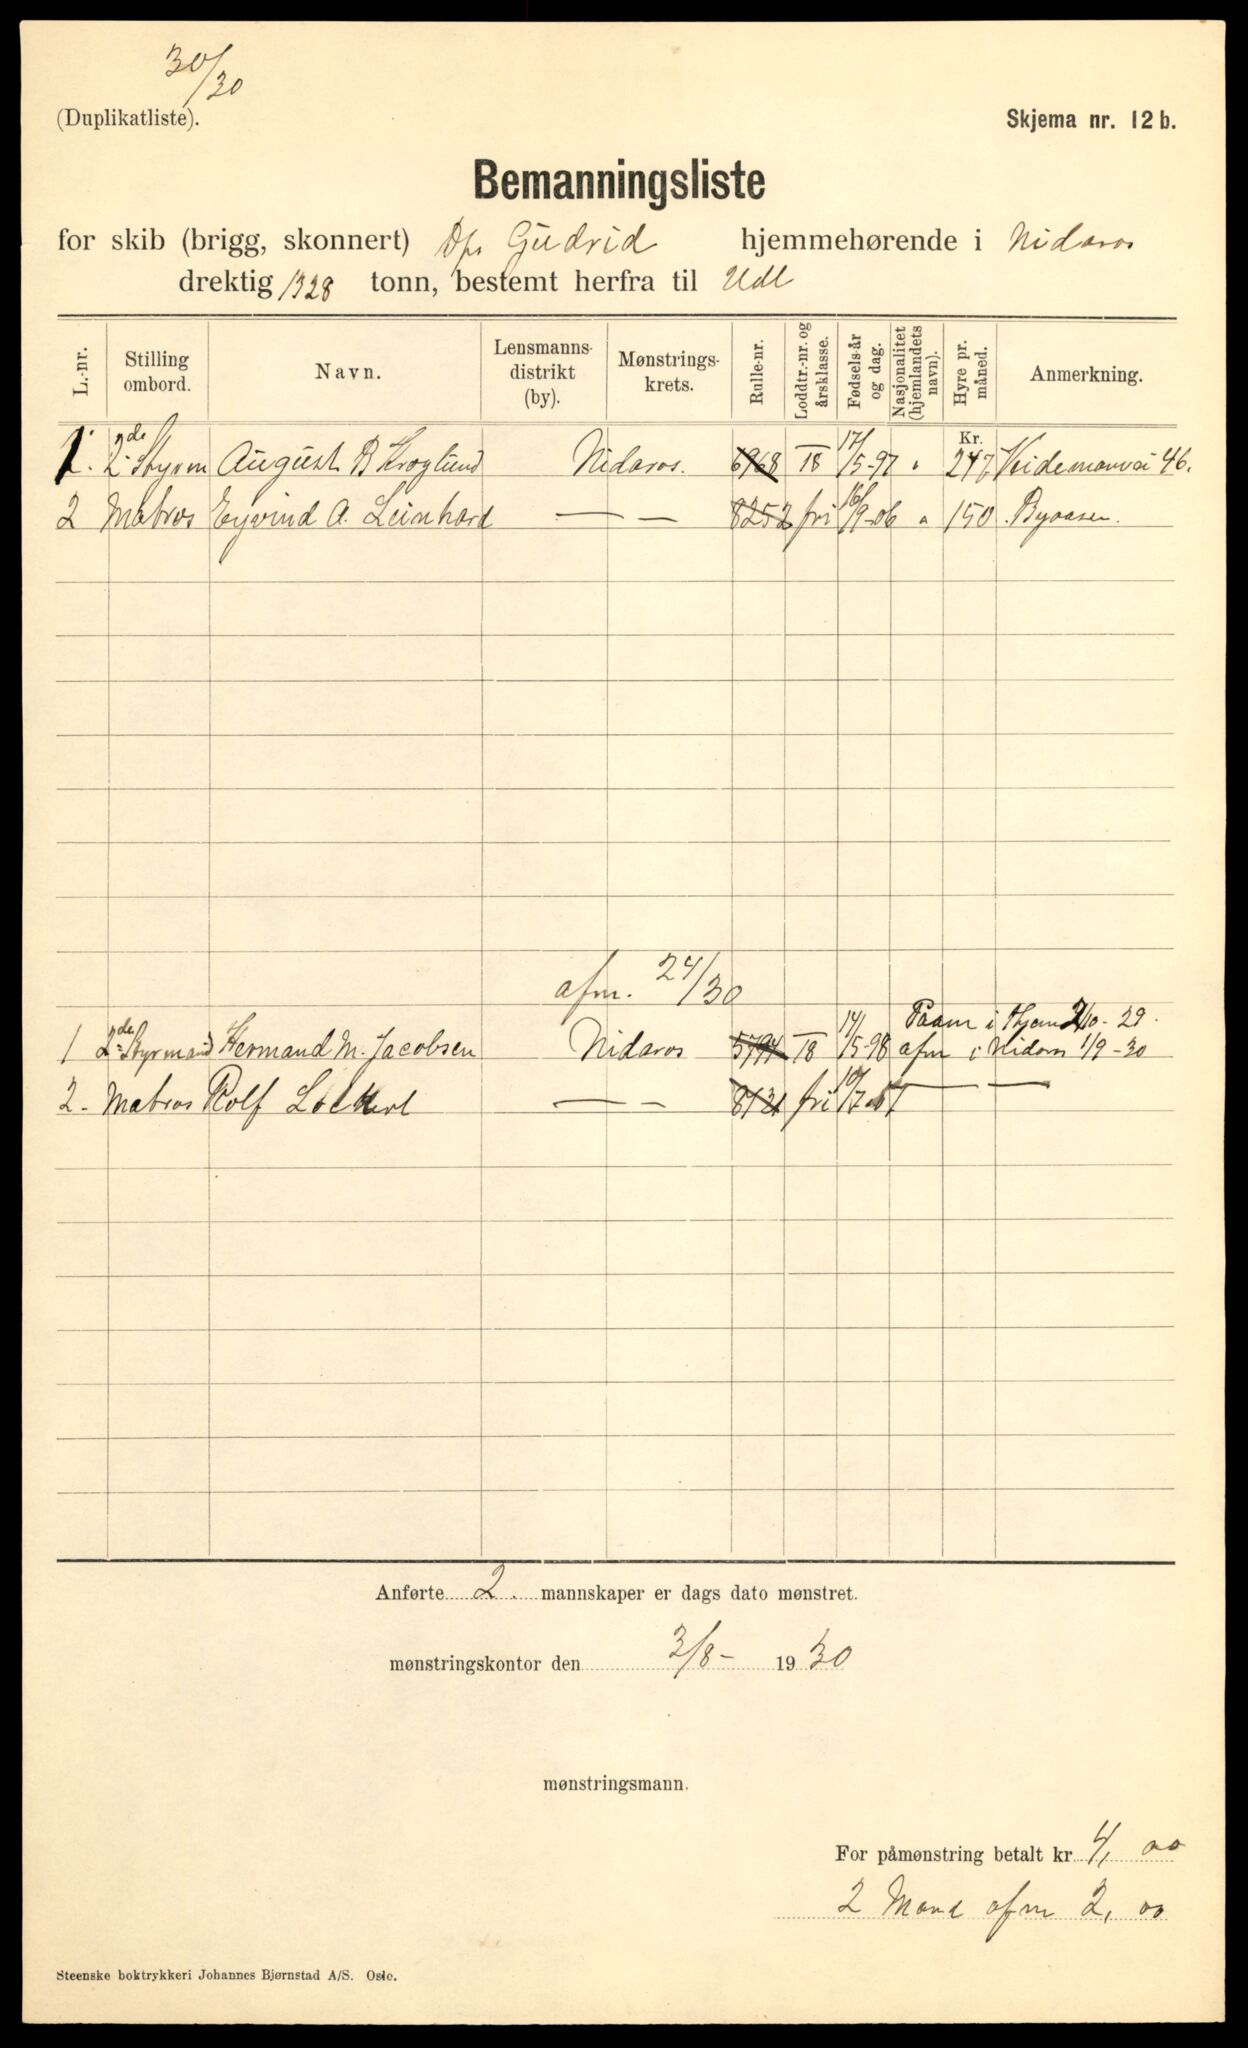 30/30
(Duplikatliste).
Skjema nr. 12 b.
Bemanningsliste
for skib (brigg, skonnert) D/s Gudrid hjemmehørende i Nidaros
drektig 1328 tonn, bestemt herfra til Udl
L.-nr. Stilling ombord. Navn. Lensmanns-distrikt (by). Mønstrings-krets. Rulle-nr. Loddtr.-nr. og årsklasse. Fødsels-år og dag. Nasjonalitet (hjemlandets navn). Hyre pr. måned. Anmerkning.
Kr.
1. 2de Styrm August B Kroglund Nidaros. 6968 III 18 17/5-97 " 247 Veidemannsvei 46.
2 Matros Eyvind A. Leinhard — — 8252 fri 16/9-06 " 150 Byaasen.
afm. 24/30
Paam i Thjem 2/10-29.
1 2de Styrmand Hermand M. Jacobsen Nidaros 5794 III 18 14/5-98 afm i Nidaros 1/9-30
2 - Matros Rolf Lockert — — 8131 fri 10/7-07 — —
Anførte 2. mannskaper er dags dato mønstret.
mønstringskontor den 3/8- 1930
mønstringsmann.
For påmønstring betalt kr 4,00
2 Mand afm 2,00
Steenske boktrykkeri Johannes Bjørnstad A/S. Oslo.